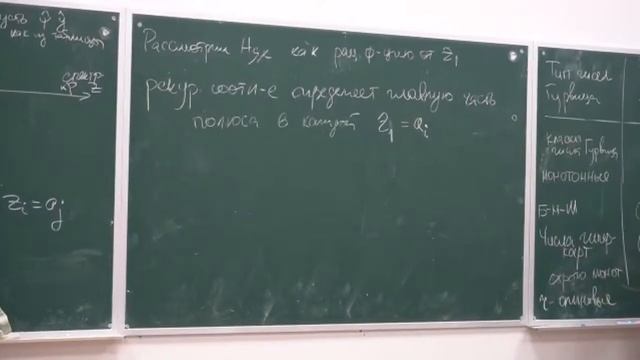 как из таблицы
спектр.
кр.
z_i = a_j
Рассмотрим H_{g,k} как рац. ф-цию от z_1
рекур. соотн-е определяет главную часть
полюса в каждой z_1 = a_i
Тип чисел
Гурвица
класси
числа Гурвица
монотонные
Б-М-Ш
Числа гипер-
карт
строго монот
r-спиновые